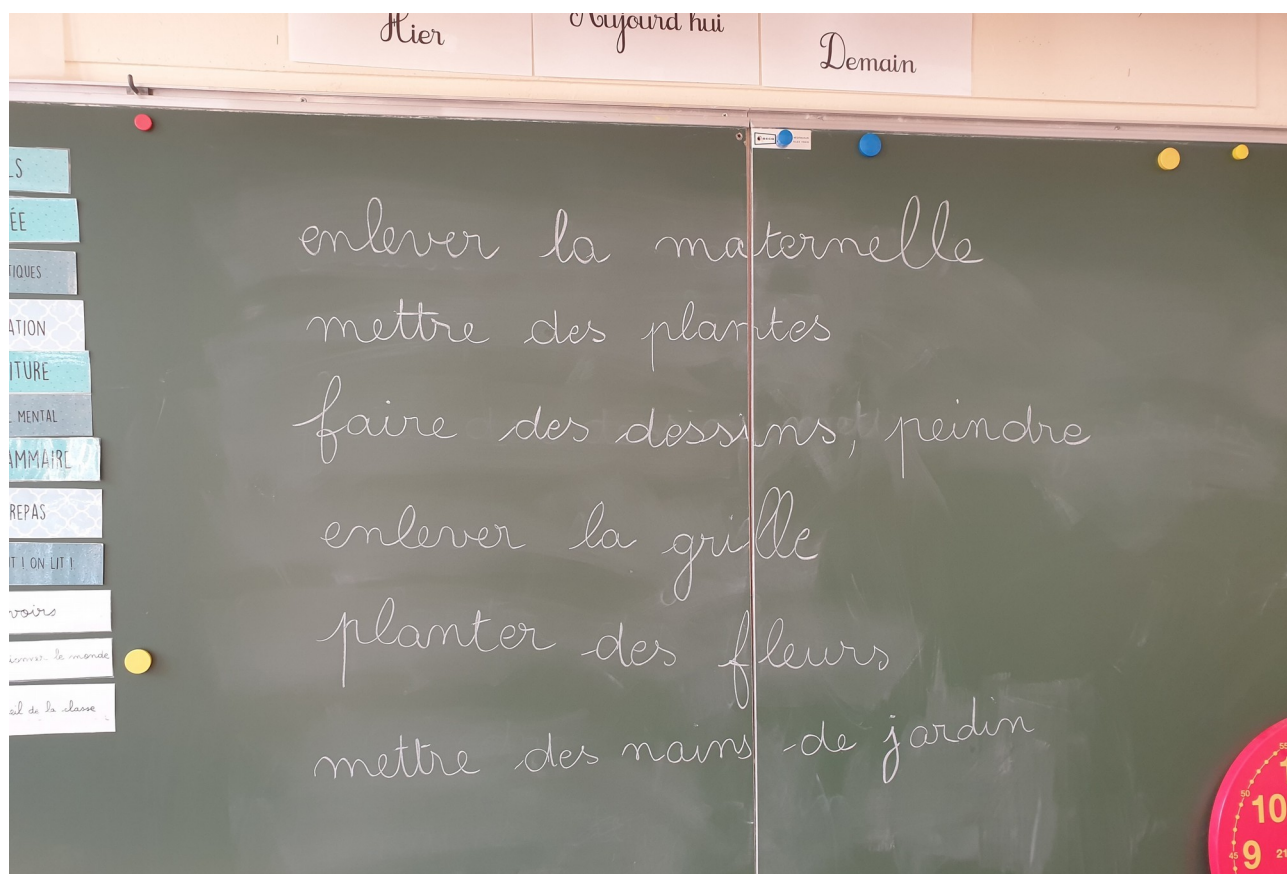 Hier
Aujourd'hui
Demain
LS
ÉE
TIQUES
ATION
ITURE
MENTAL
AMMAIRE
REPAS
IT ! ON LIT !
voirs
le monde
eil de la classe
enlever la maternelle
mettre des plantes
faire des dessins, peindre
enlever la grille
planter des fleurs
mettre des nains de jardin
55
50
10
45
9
21